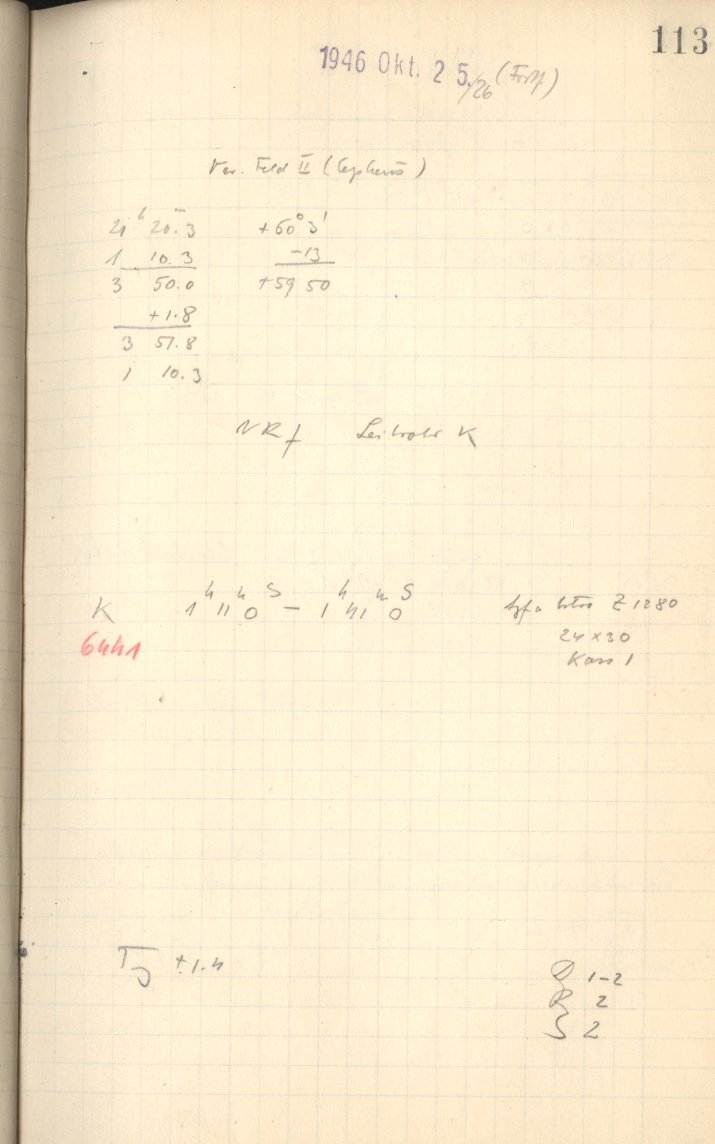 113
1946 Okt. 25./26 (Forts.)
Var. Feld II (Cepheus)
21h 20m.3 +60° 3'
1 10.3 -13
3 50.0 +59 50
+1.8
3 51.8
1 10.3
Leitrohr K
K 1h 11m 0s – 1h 41m 0s Agfa Astro Z 1280
6441 24x30
Kass 1
+1.4
1-2
R 2
S 2